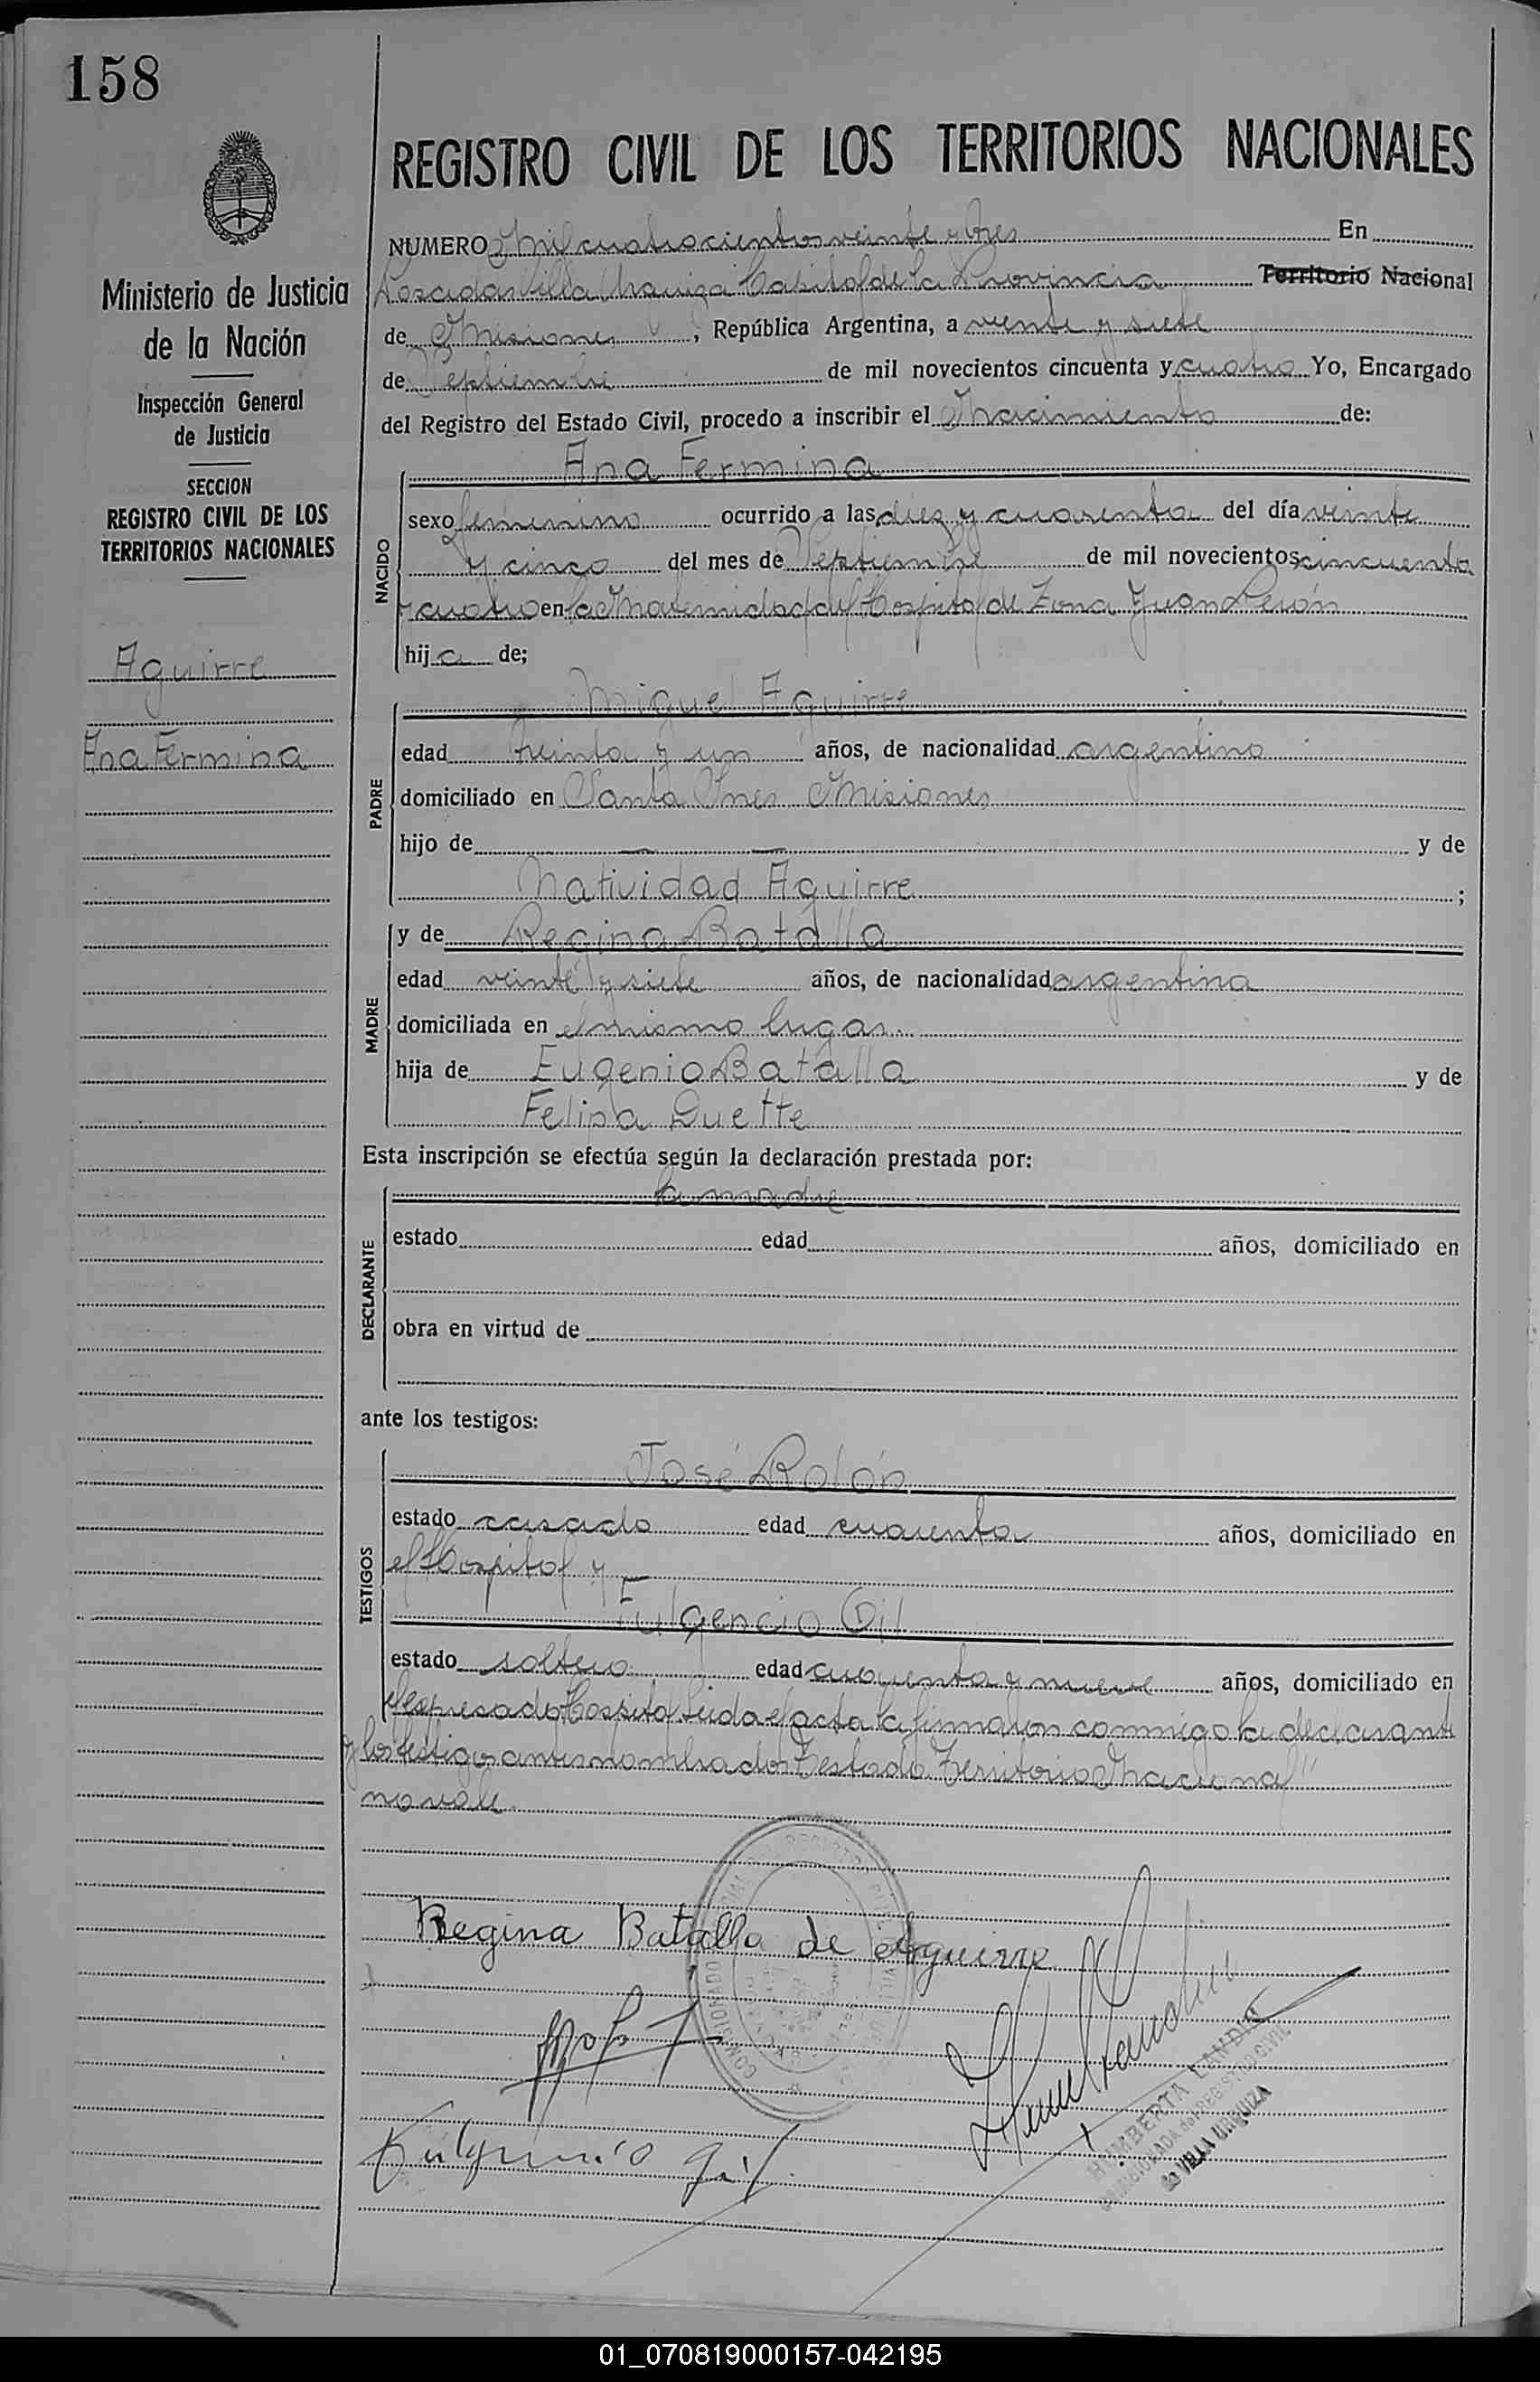 158
REGISTRO CIVIL DE LOS TERRITORIOS NACIONALES
Ministerio de Justicia
de la Nación
Inspección General
de Justicia
SECCION
REGISTRO CIVIL DE LOS
TERRITORIOS NACIONALES
Aguirre
Ana Fermina
NUMERO Mil cuatrocientos veinte y tres En
Posadas Villa Urquiza Capital de la Provincia Territorio Nacional
de Misiones, República Argentina, a veinte y siete
de Septiembre de mil novecientos cincuenta y cuatro Yo, Encargado
del Registro del Estado Civil, procedo a inscribir el Nacimiento de:
NACIDO
Ana Fermina
sexo femenino ocurrido a las diez y cuarenta del día veinte
y cinco del mes de Septiembre de mil novecientos cincuenta
y cuatro en la Maternidad del Hospital de Zona Juan Perón
hija de;
PADRE
Miguel Aguirre
edad treinta y un años, de nacionalidad argentino
domiciliado en Santa Ines Misiones
hijo de — — y de
Natividad Aguirre ;
MADRE
y de Regina Batalla
edad veinte y siete años, de nacionalidad argentina
domiciliada en el mismo lugar
hija de Eugenio Batalla y de
Felipa Duette
Esta inscripción se efectúa según la declaración prestada por:
DECLARANTE
la madre
estado edad años, domiciliado en
obra en virtud de
ante los testigos:
TESTIGOS
José Rolón
estado casado edad cuarenta años, domiciliado en
el Hospital y
Fulgencio Gil
estado soltero edad cuarenta y nueve años, domiciliado en
el expresado Hospital. Leida el acta la firmaron conmigo la declarante
y los testigos antes nombrados Testado "Territorio Nacional"
no vale
Regina Batalla de Aguirre
Fulgencio Gil
HUMBERTA LANDIE
COMISIONADA del REGISTRO CIVIL
de VILLA URQUIZA
01_070819000157-042195